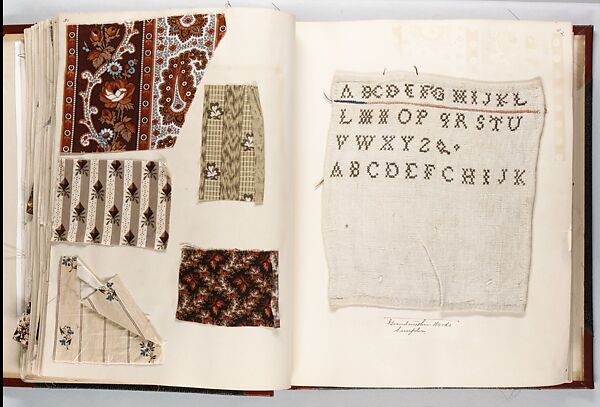 A BCDEFG HIJKL
LMNOP QRSTU
VWXYZ&.
ABCDEFGHIJK
Grandmother Wood's
Sampler